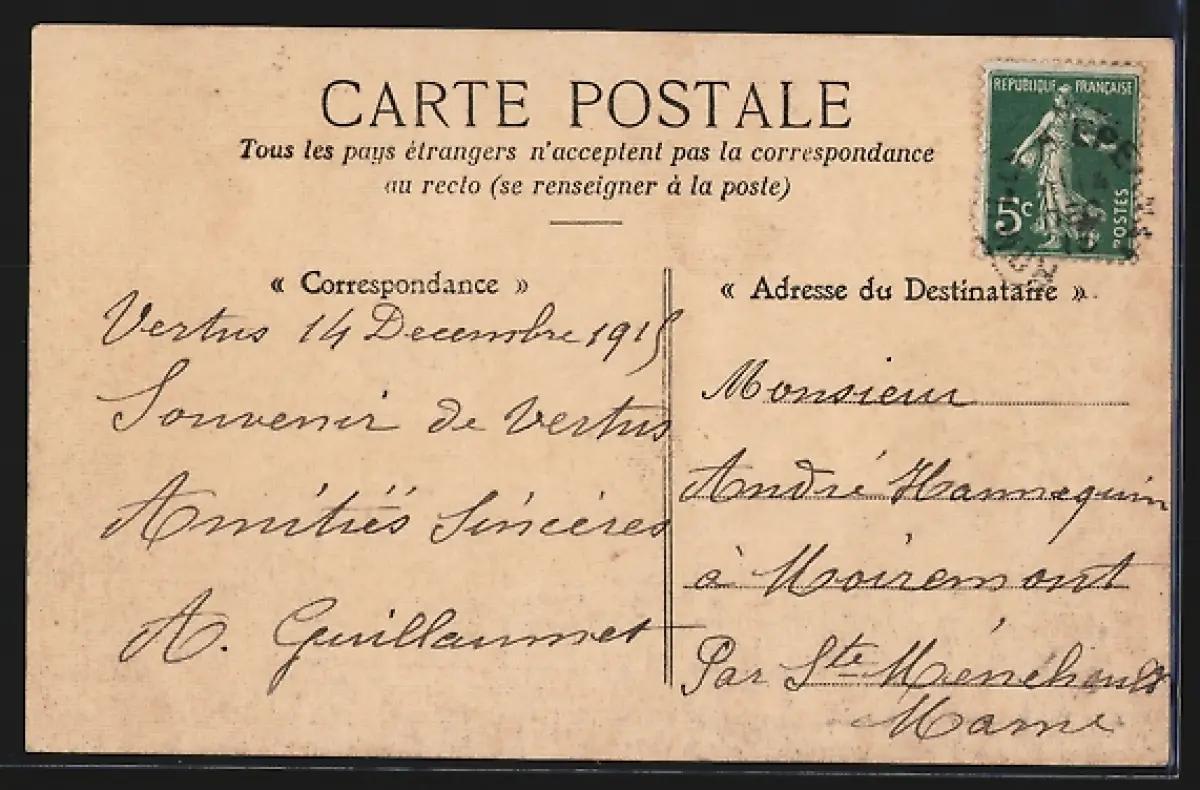 CARTE POSTALE
Tous les pays étrangers n'acceptent pas la correspondance
au recto (se renseigner à la poste)
REPUBLIQUE FRANÇAISE
5c
POSTES
« Correspondance »
Vertus 14 Decembre 1915
Souvenir de Vertus
Amitiés Sincères
A. Guillaumet
« Adresse du Destinataire »
Monsieur
André Hannequin
à Moiremont
Par Ste Ménehould
Marne